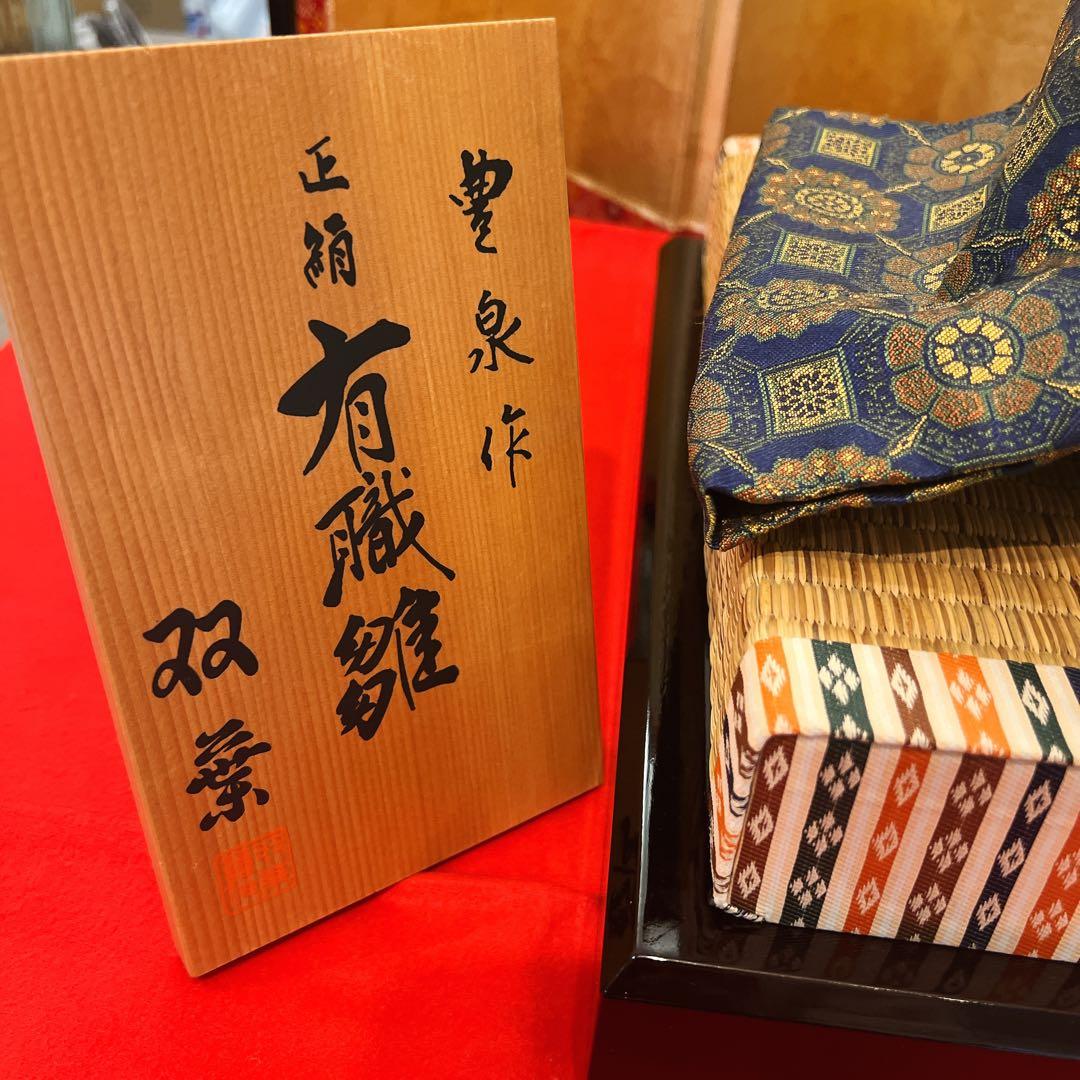 豊泉作
正絹
有職雛
双葉